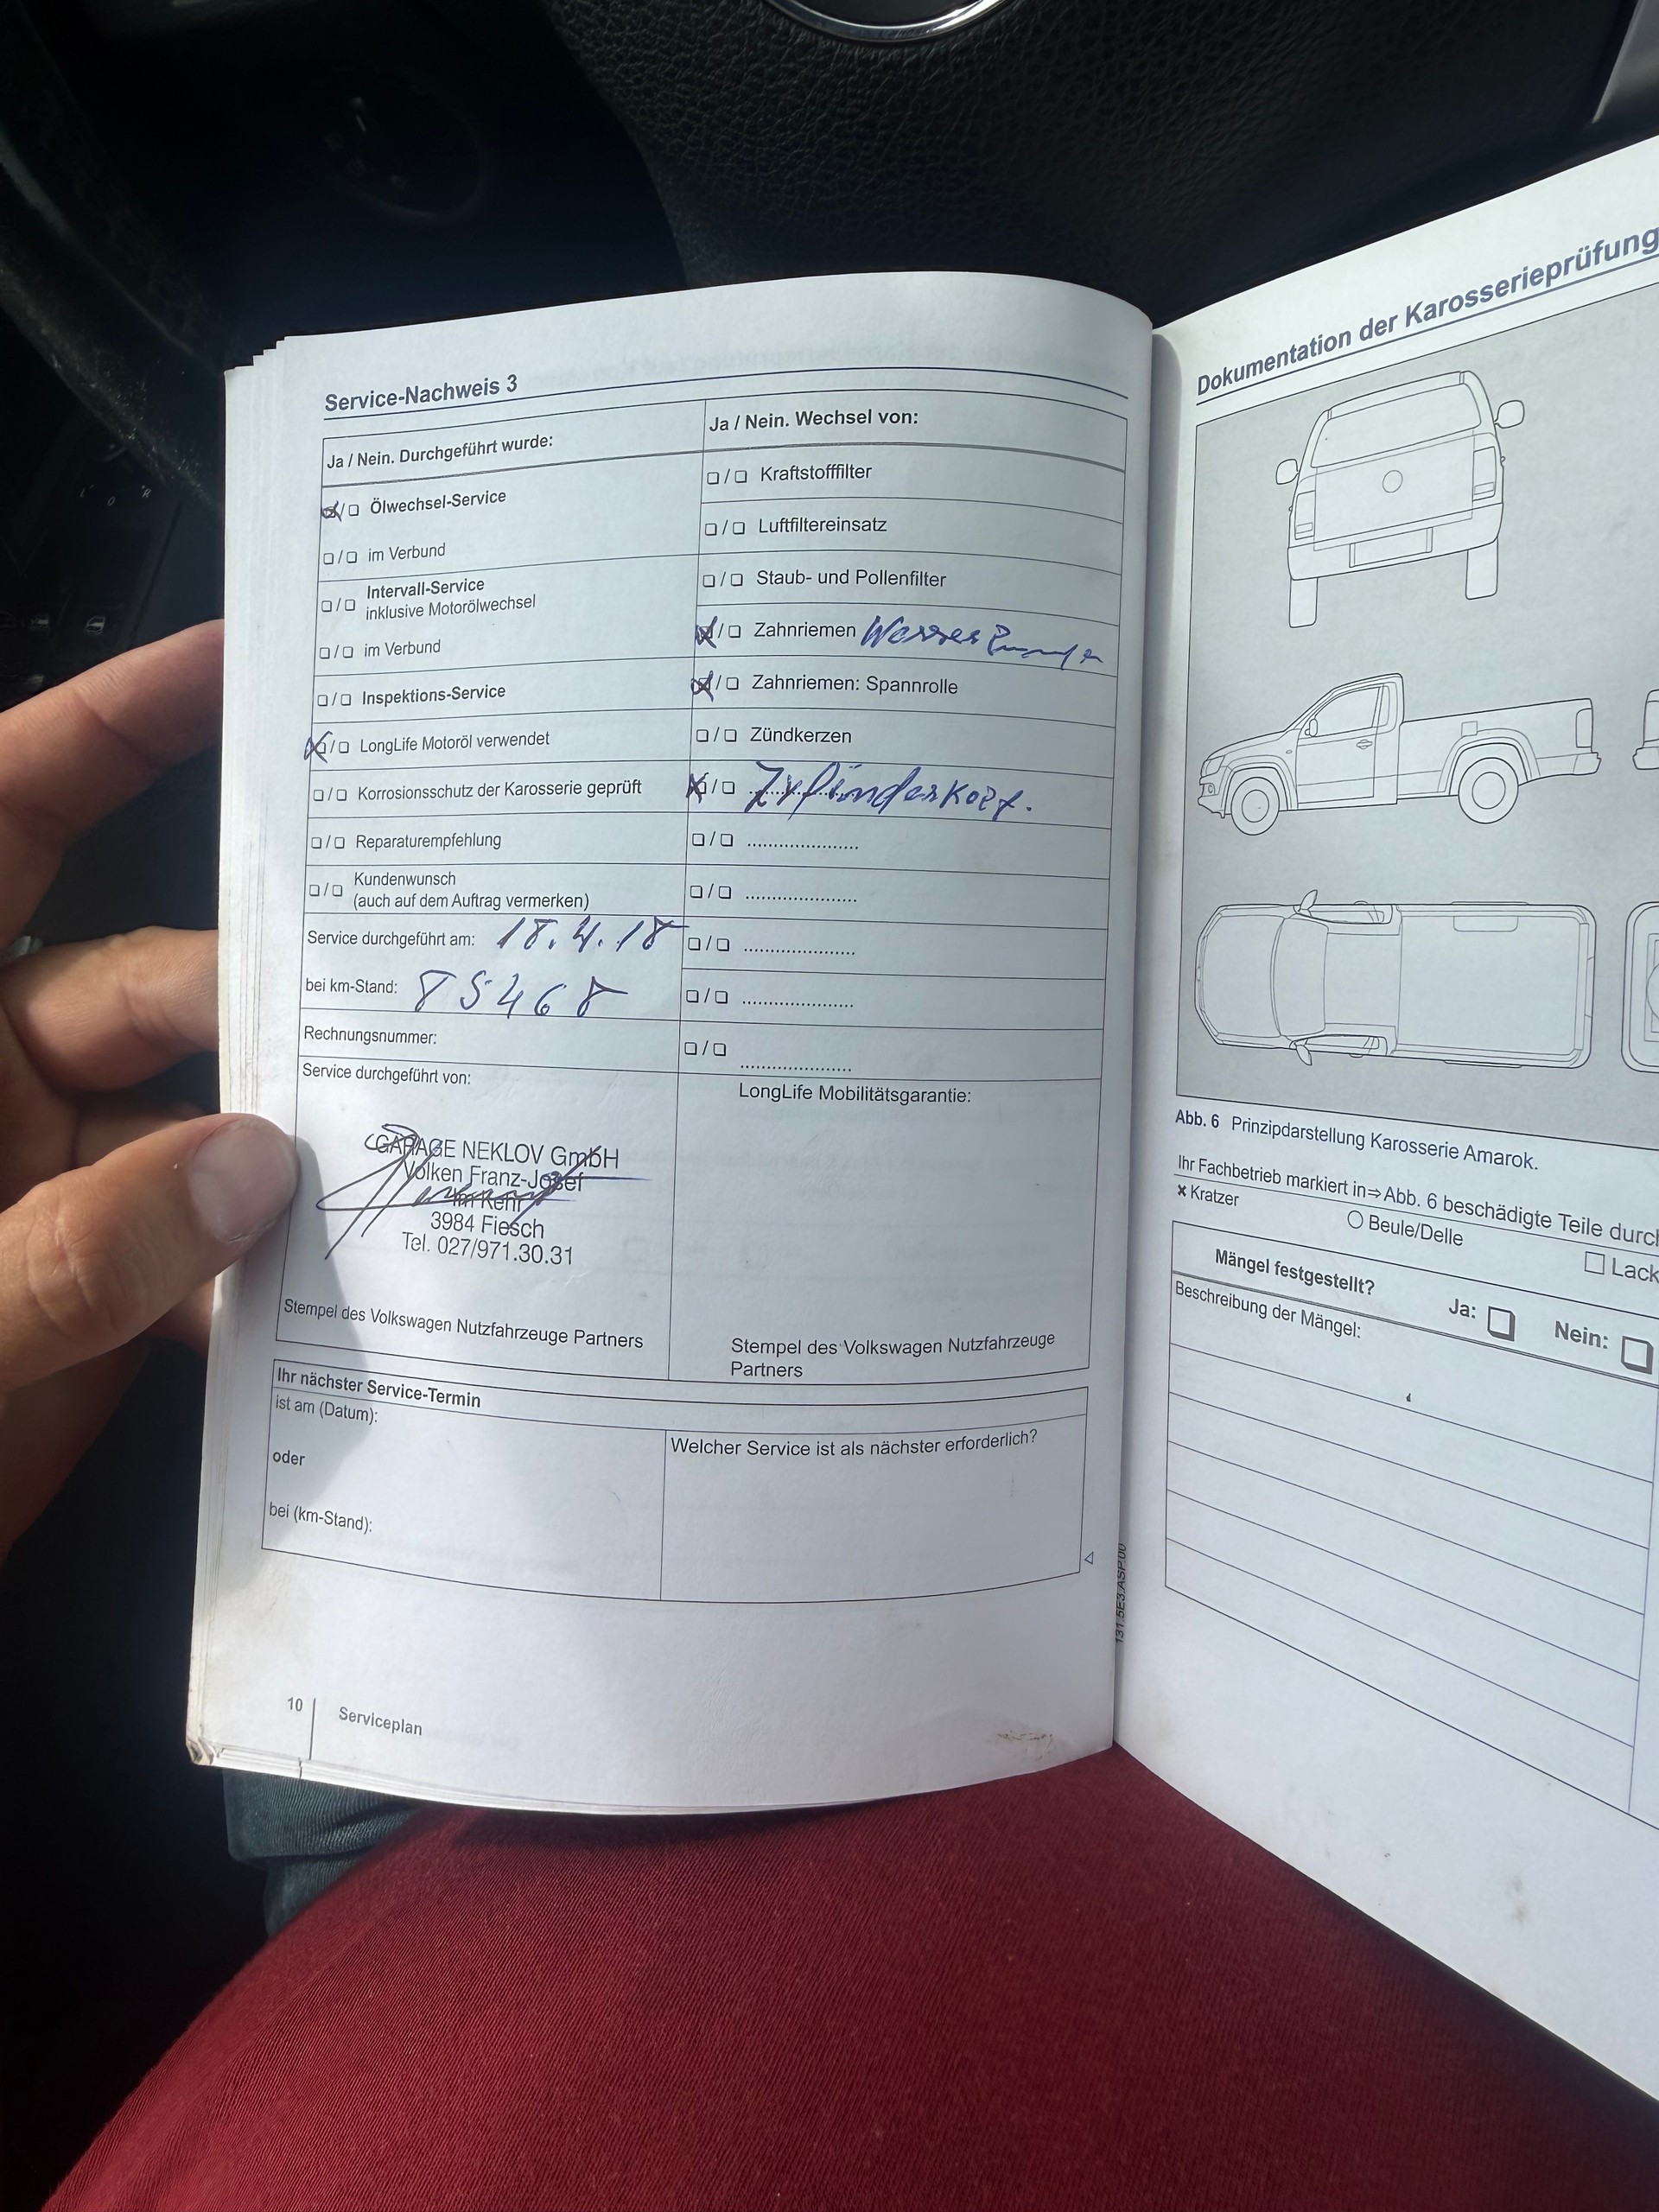 Service-Nachweis 3
Ja / Nein. Durchgeführt wurde:
Ölwechsel-Service
im Verbund
Intervall-Service
inklusive Motorölwechsel
im Verbund
Inspektions-Service
LongLife Motoröl verwendet
Korrosionsschutz der Karosserie geprüft
Reparaturempfehlung
Kundenwunsch
(auch auf dem Auftrag vermerken)
Service durchgeführt am: 18.4.18
bei km-Stand: 85468
Rechnungsnummer:
Service durchgeführt von:
GARAGE NEKLOV GmbH
Volken Franz-Josef
3984 Fiesch
Tel. 027/971.30.31
Stempel des Volkswagen Nutzfahrzeuge Partners
Ja / Nein. Wechsel von:
Kraftstofffilter
Luftfiltereinsatz
Staub- und Pollenfilter
Zahnriemen Wasser
Zahnriemen: Spannrolle
Zündkerzen
Zylinderkopf.
LongLife Mobilitätsgarantie:
Stempel des Volkswagen Nutzfahrzeuge
Partners
Ihr nächster Service-Termin
ist am (Datum):
oder
bei (km-Stand):
Welcher Service ist als nächster erforderlich?
10
Serviceplan
131.5E3.ASP.00
Dokumentation der Karosserieprüfung
Abb. 6 Prinzipdarstellung Karosserie Amarok.
Ihr Fachbetrieb markiert in⇒Abb. 6 beschädigte Teile durch
Kratzer
Beule/Delle
Lack
Mängel festgestellt?
Ja:
Nein:
Beschreibung der Mängel: